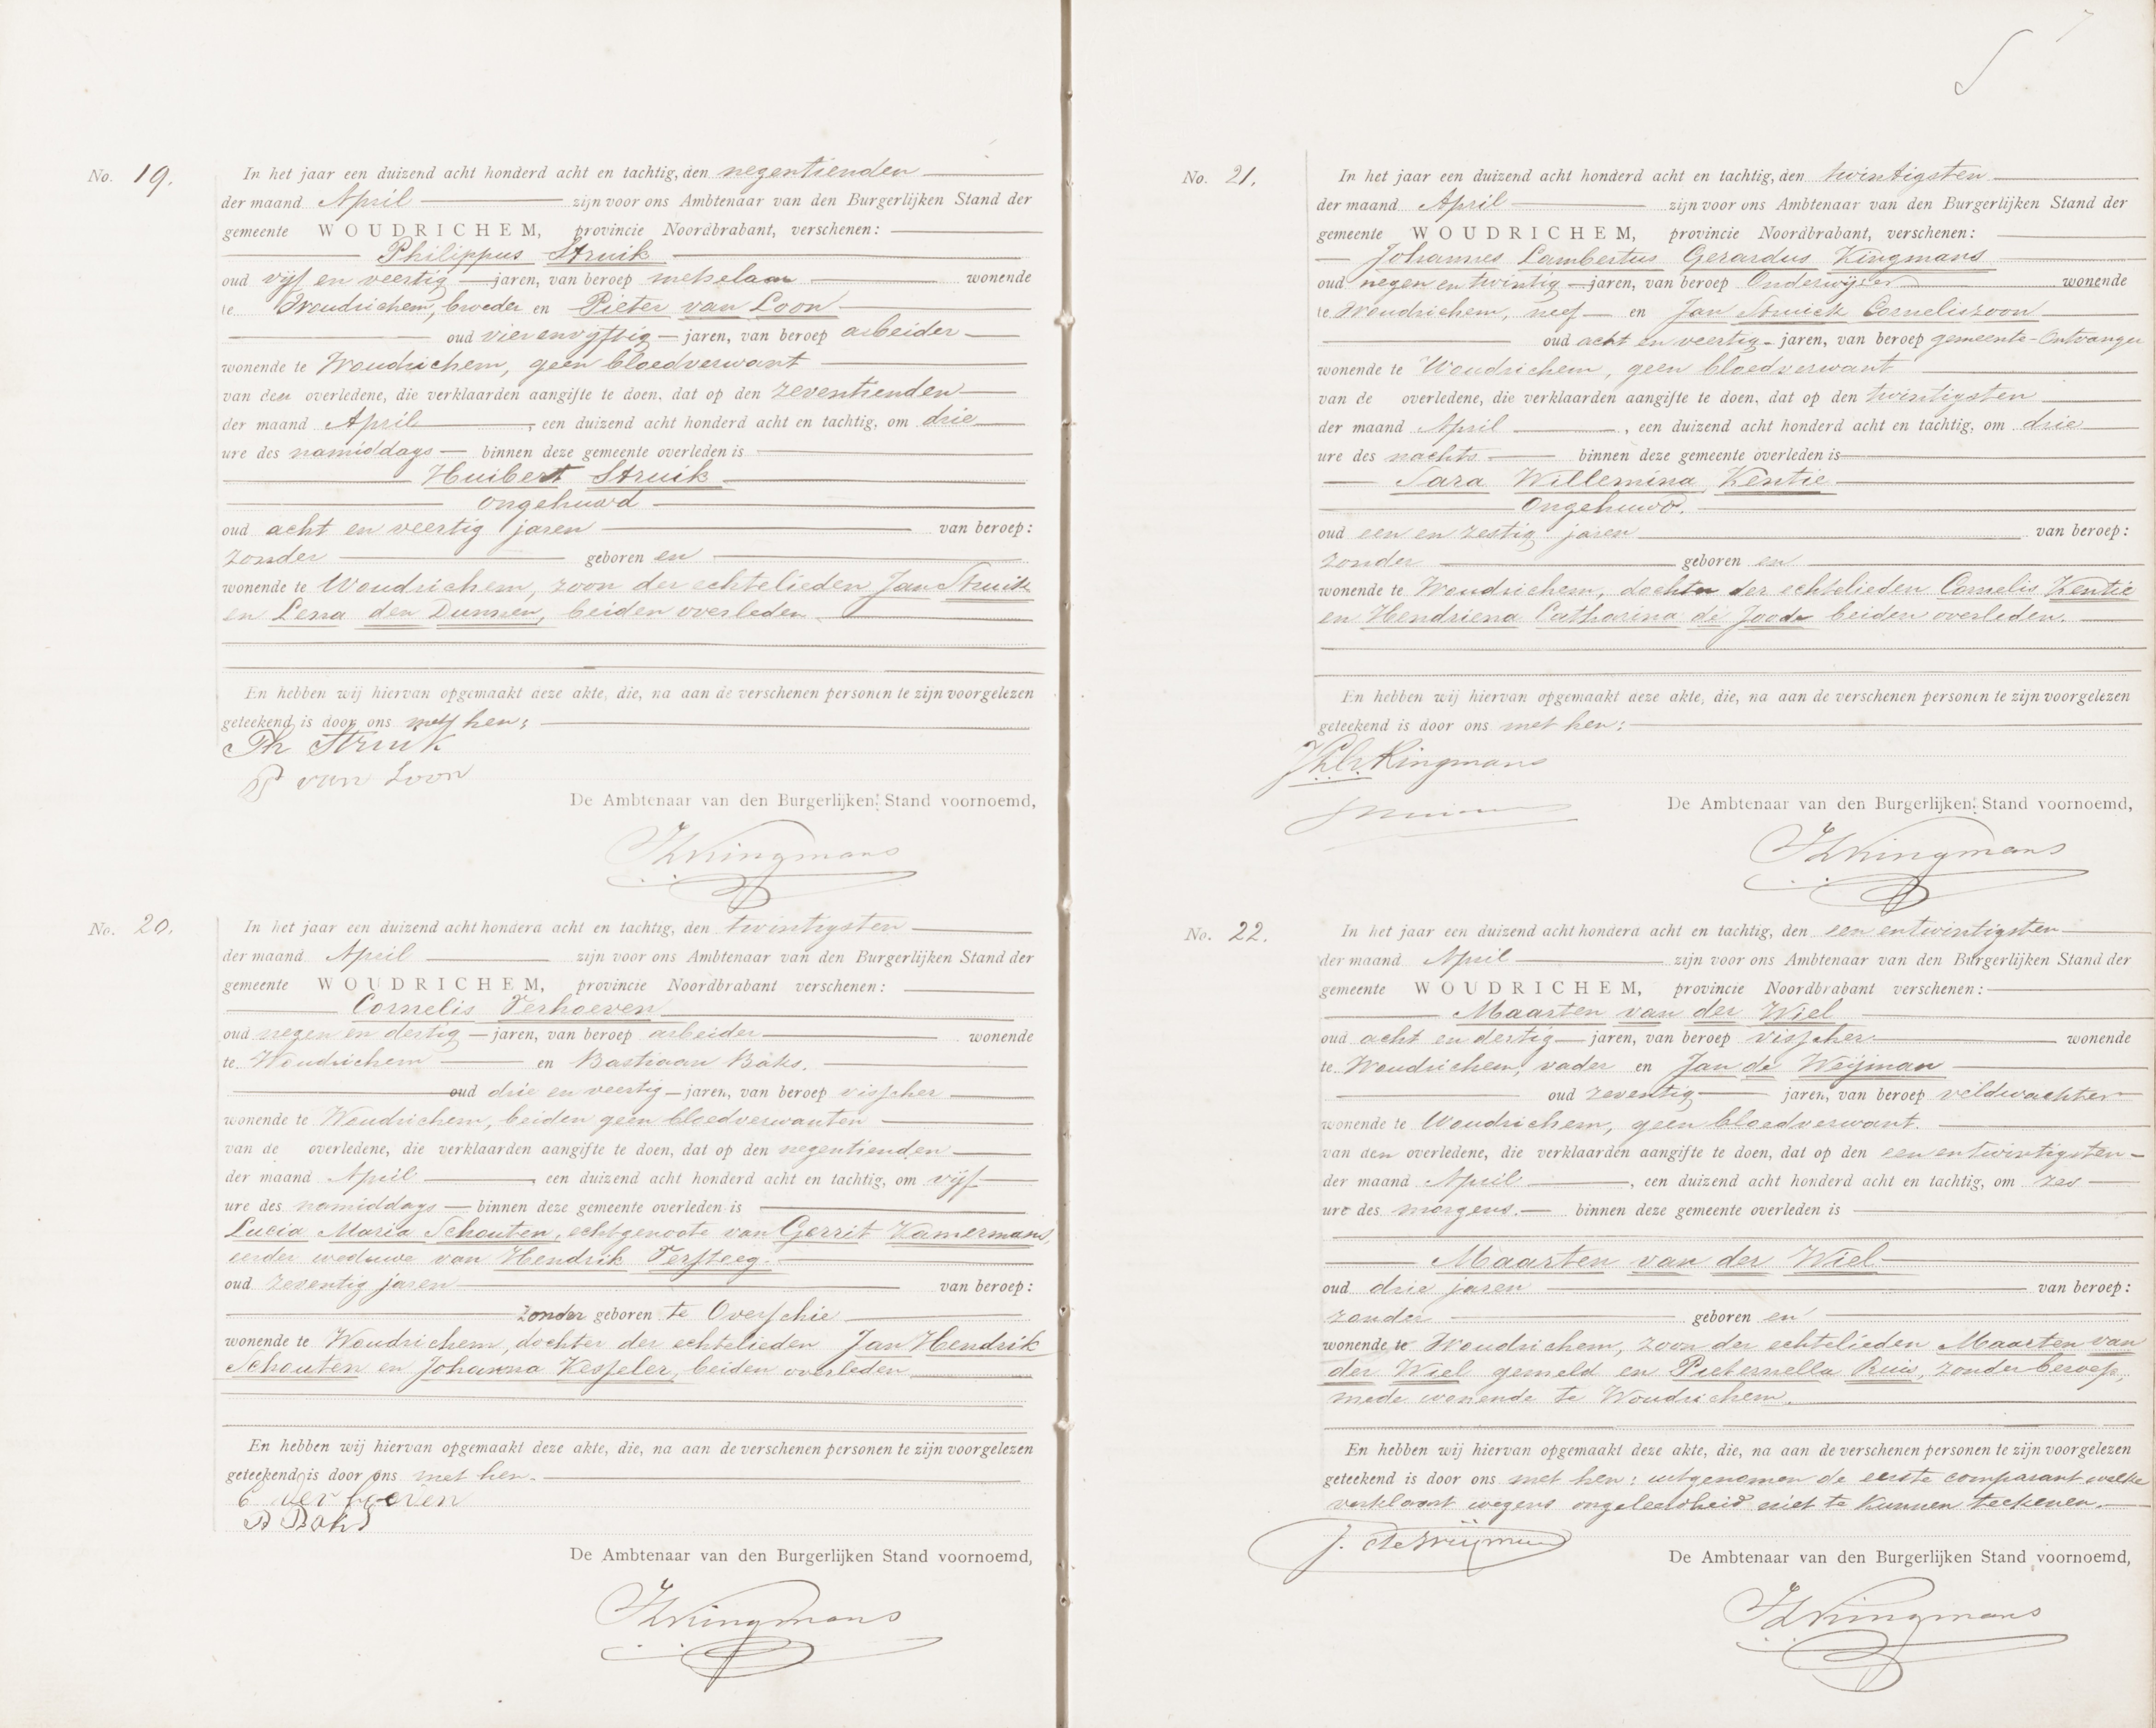 No. 19.
In het jaar een duizend acht honderd acht en tachtig, den negentienden
der maand April zijn voor ons Ambtenaar van den Burgerlijken Stand der
gemeente WOUDRICHEM, provincie Noordbrabant, verschenen:
Philippus Struik
oud vijf en veertig jaren, van beroep metselaar wonende
te Woudrichem, broeder en Pieter van Loon
oud vier en vijftig jaren, van beroep arbeider
wonende te Woudrichem, geen bloedverwant
van den overledene, die verklaarden aangifte te doen, dat op den zeventienden
der maand April, een duizend acht honderd acht en tachtig, om drie
ure des namiddags binnen deze gemeente overleden is
Huibert Struik
ongehuwd
oud acht en veertig jaren van beroep:
zonder geboren en
wonende te Woudrichem, zoon der echtelieden Jan Struik
en Lena den Dunnen, beiden overleden
En hebben wij hiervan opgemaakt deze akte, die, na aan de verschenen personen te zijn voorgelezen
geteekend is door ons met hen;
Ph Struik
P van Loon
De Ambtenaar van den Burgerlijken Stand voornoemd,
Kingmans
No. 20.
In het jaar een duizend acht honderd acht en tachtig, den twintigsten
der maand April zijn voor ons Ambtenaar van den Burgerlijken Stand der
gemeente WOUDRICHEM, provincie Noordbrabant verschenen:
Cornelis Verhoeven
oud negen en dertig jaren, van beroep arbeider wonende
te Woudrichem en Bastiaan Baks.
oud drie en veertig jaren, van beroep visscher
wonende te Woudrichem, beiden geen bloedverwanten
van de overledene, die verklaarden aangifte te doen, dat op den negentienden
der maand April, een duizend acht honderd acht en tachtig, om vijf
ure des namiddags binnen deze gemeente overleden is
Lucia Maria Schouten, echtgenoote van Gerrit Kamermans,
eerder weduwe van Hendrik Versteeg.
oud zeventig jaren van beroep:
zonder geboren te Overschie
wonende te Woudrichem, dochter der echtelieden Jan Hendrik
Schouten en Johanna Kesseler, beiden overleden
En hebben wij hiervan opgemaakt deze akte, die, na aan de verschenen personen te zijn voorgelezen
geteekend is door ons met hen.
C Verhoeven
B Baks
De Ambtenaar van den Burgerlijken Stand voornoemd,
Kingmans
No. 21.
In het jaar een duizend acht honderd acht en tachtig, den twintigsten
der maand April zijn voor ons Ambtenaar van den Burgerlijken Stand der
gemeente WOUDRICHEM, provincie Noordbrabant, verschenen:
Johannes Lambertus Gerardus Kingmans
oud negen en twintig jaren, van beroep Onderwijzer wonende
te Woudrichem, neef en Jan Struick Corneliszoon
oud acht en veertig jaren, van beroep gemeente-Ontvanger
wonende te Woudrichem, geen bloedverwant
van de overledene, die verklaarden aangifte te doen, dat op den twintigsten
der maand April, een duizend acht honderd acht en tachtig, om drie
ure des nachts binnen deze gemeente overleden is
Sara Willemina Kentie
Ongehuwd.
oud een en zestig jaren van beroep:
zonder geboren en
wonende te Woudrichem, dochter der echtelieden Cornelis Kentie
en Hendriena Catharina de Joode beiden overleden.
En hebben wij hiervan opgemaakt deze akte, die, na aan de verschenen personen te zijn voorgelezen
geteekend is door ons met hen:
Kingmans
De Ambtenaar van den Burgerlijken Stand voornoemd,
Kingmans
No. 22.
In het jaar een duizend acht honderd acht en tachtig, den een en twintigsten
der maand April zijn voor ons Ambtenaar van den Burgerlijken Stand der
gemeente WOUDRICHEM, provincie Noordbrabant verschenen:
Maarten van der Wiel
oud acht en dertig jaren, van beroep visscher wonende
te Woudrichem, vader en Jan de Weijman
oud zeventig jaren, van beroep veldwachter
wonende te Woudrichem, geen bloedverwant.
van den overledene, die verklaarden aangifte te doen, dat op den een en twintigsten
der maand April, een duizend acht honderd acht en tachtig, om zes
ure des morgens. binnen deze gemeente overleden is
Maarten van der Wiel
oud drie jaren van beroep:
zonder geboren en
wonende te Woudrichem, zoon der echtelieden Maarten van
der Wiel gemeld en Pieternella Ruis, zonder beroep,
mede wonende te Woudrichem.
En hebben wij hiervan opgemaakt deze akte, die, na aan de verschenen personen te zijn voorgelezen
geteekend is door ons met hen: uitgenomen de eerste comparant welke
verklaart wegens ongeleerdheid niet te kunnen teekenen.
J. de Weijman
De Ambtenaar van den Burgerlijken Stand voornoemd,
Kingmans